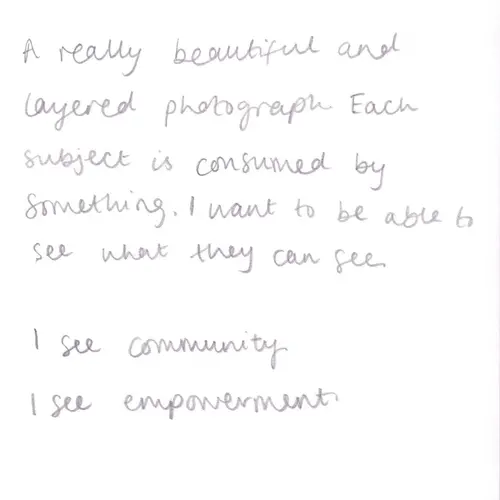 A really beautiful and
layered photograph. Each
subject is consumed by
something. I want to be able to
see what they can see.
I see community
I see empowerment.